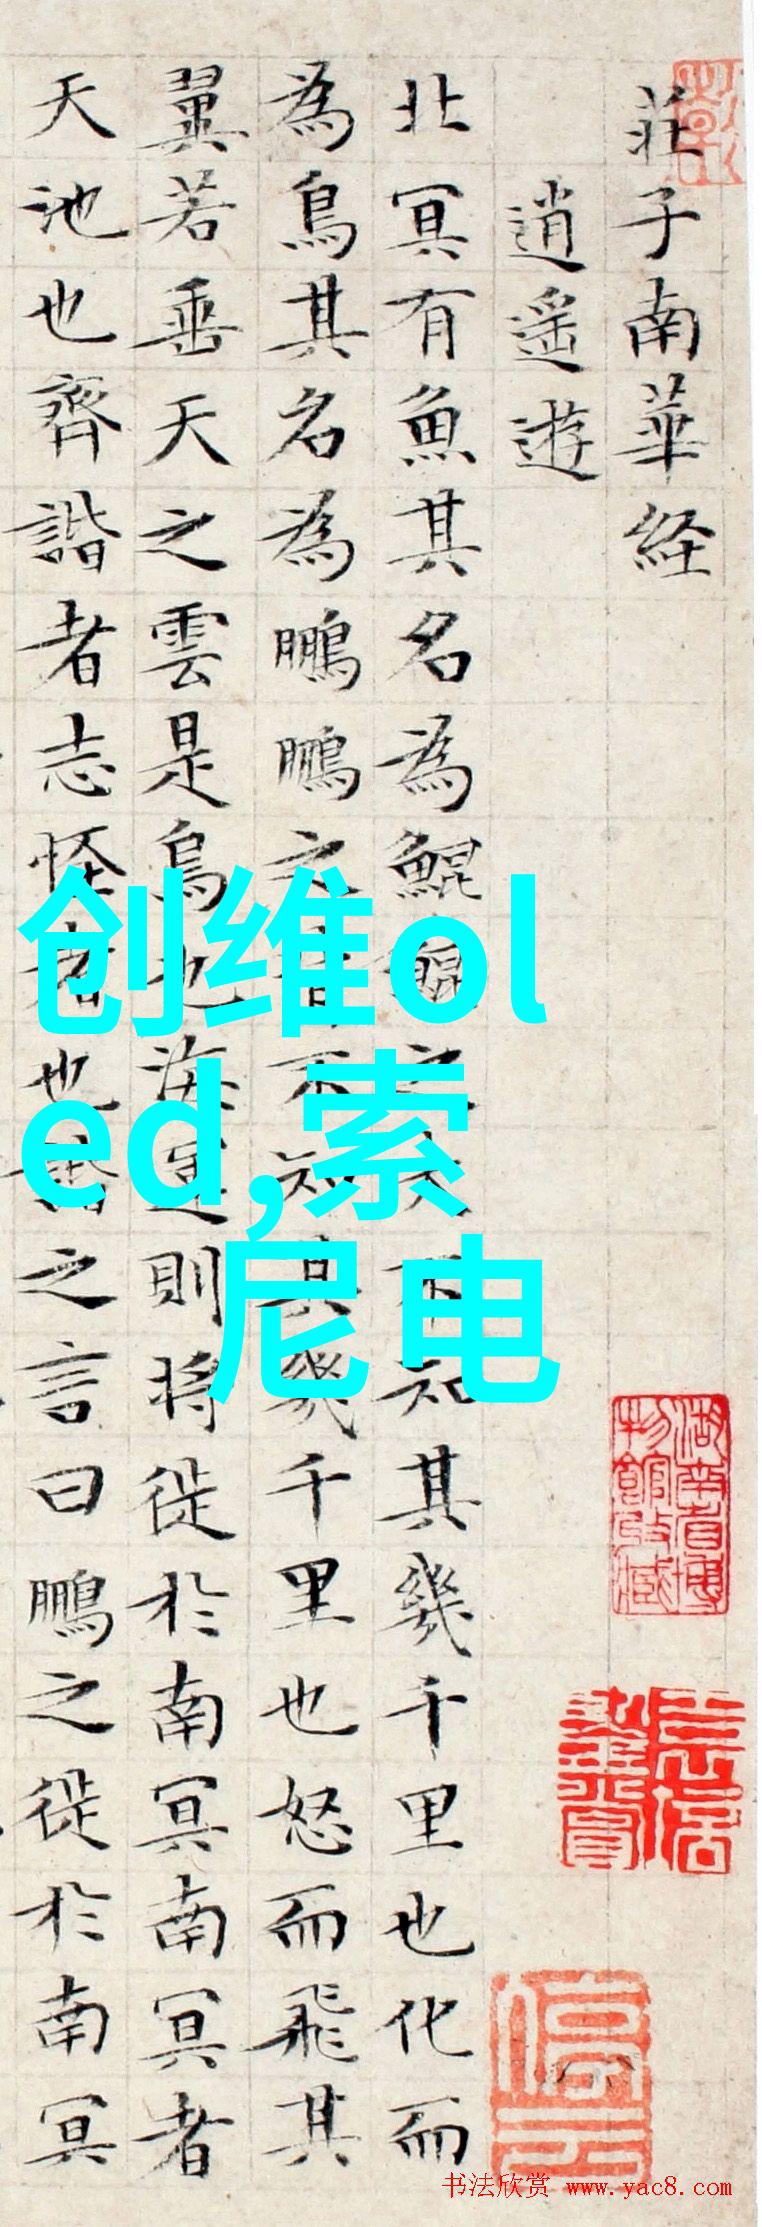 莊子南華経
逍遥遊
北冥有魚其名為鯤鯤之大不知其幾千里也化而
為鳥其名為鵬鵬之背不知其幾千里也怒而飛其
翼若垂天之雲是鳥也海運則將徙於南冥南冥者
天池也齊諧者志怪者也諧之言曰鵬之徙於南冥
创维ol
ed,索
尼电
湖南省博
物館收藏
书法欣赏 www.yac8.com